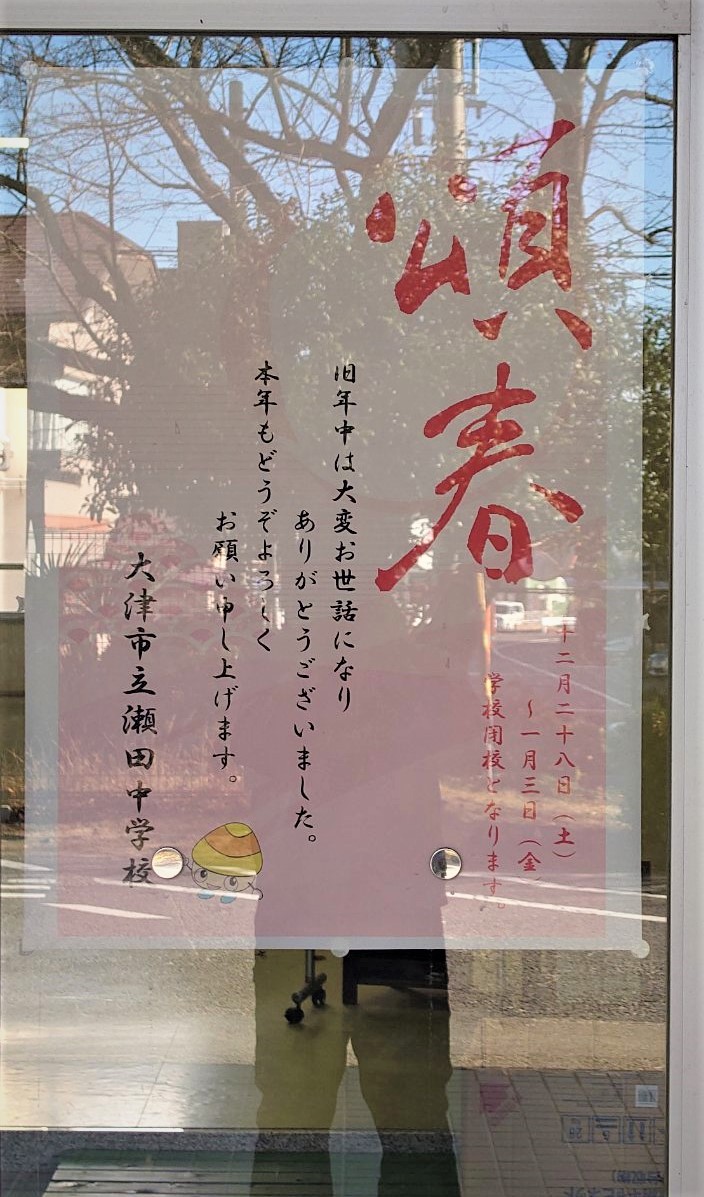 頌春
十二月二十八日（土）
～一月三日（金
学校閉校となります。
旧年中は大変お世話になり
ありがとうございました。
本年もどうぞよろしく
お願い申し上げます。
大津市立瀬田中学校